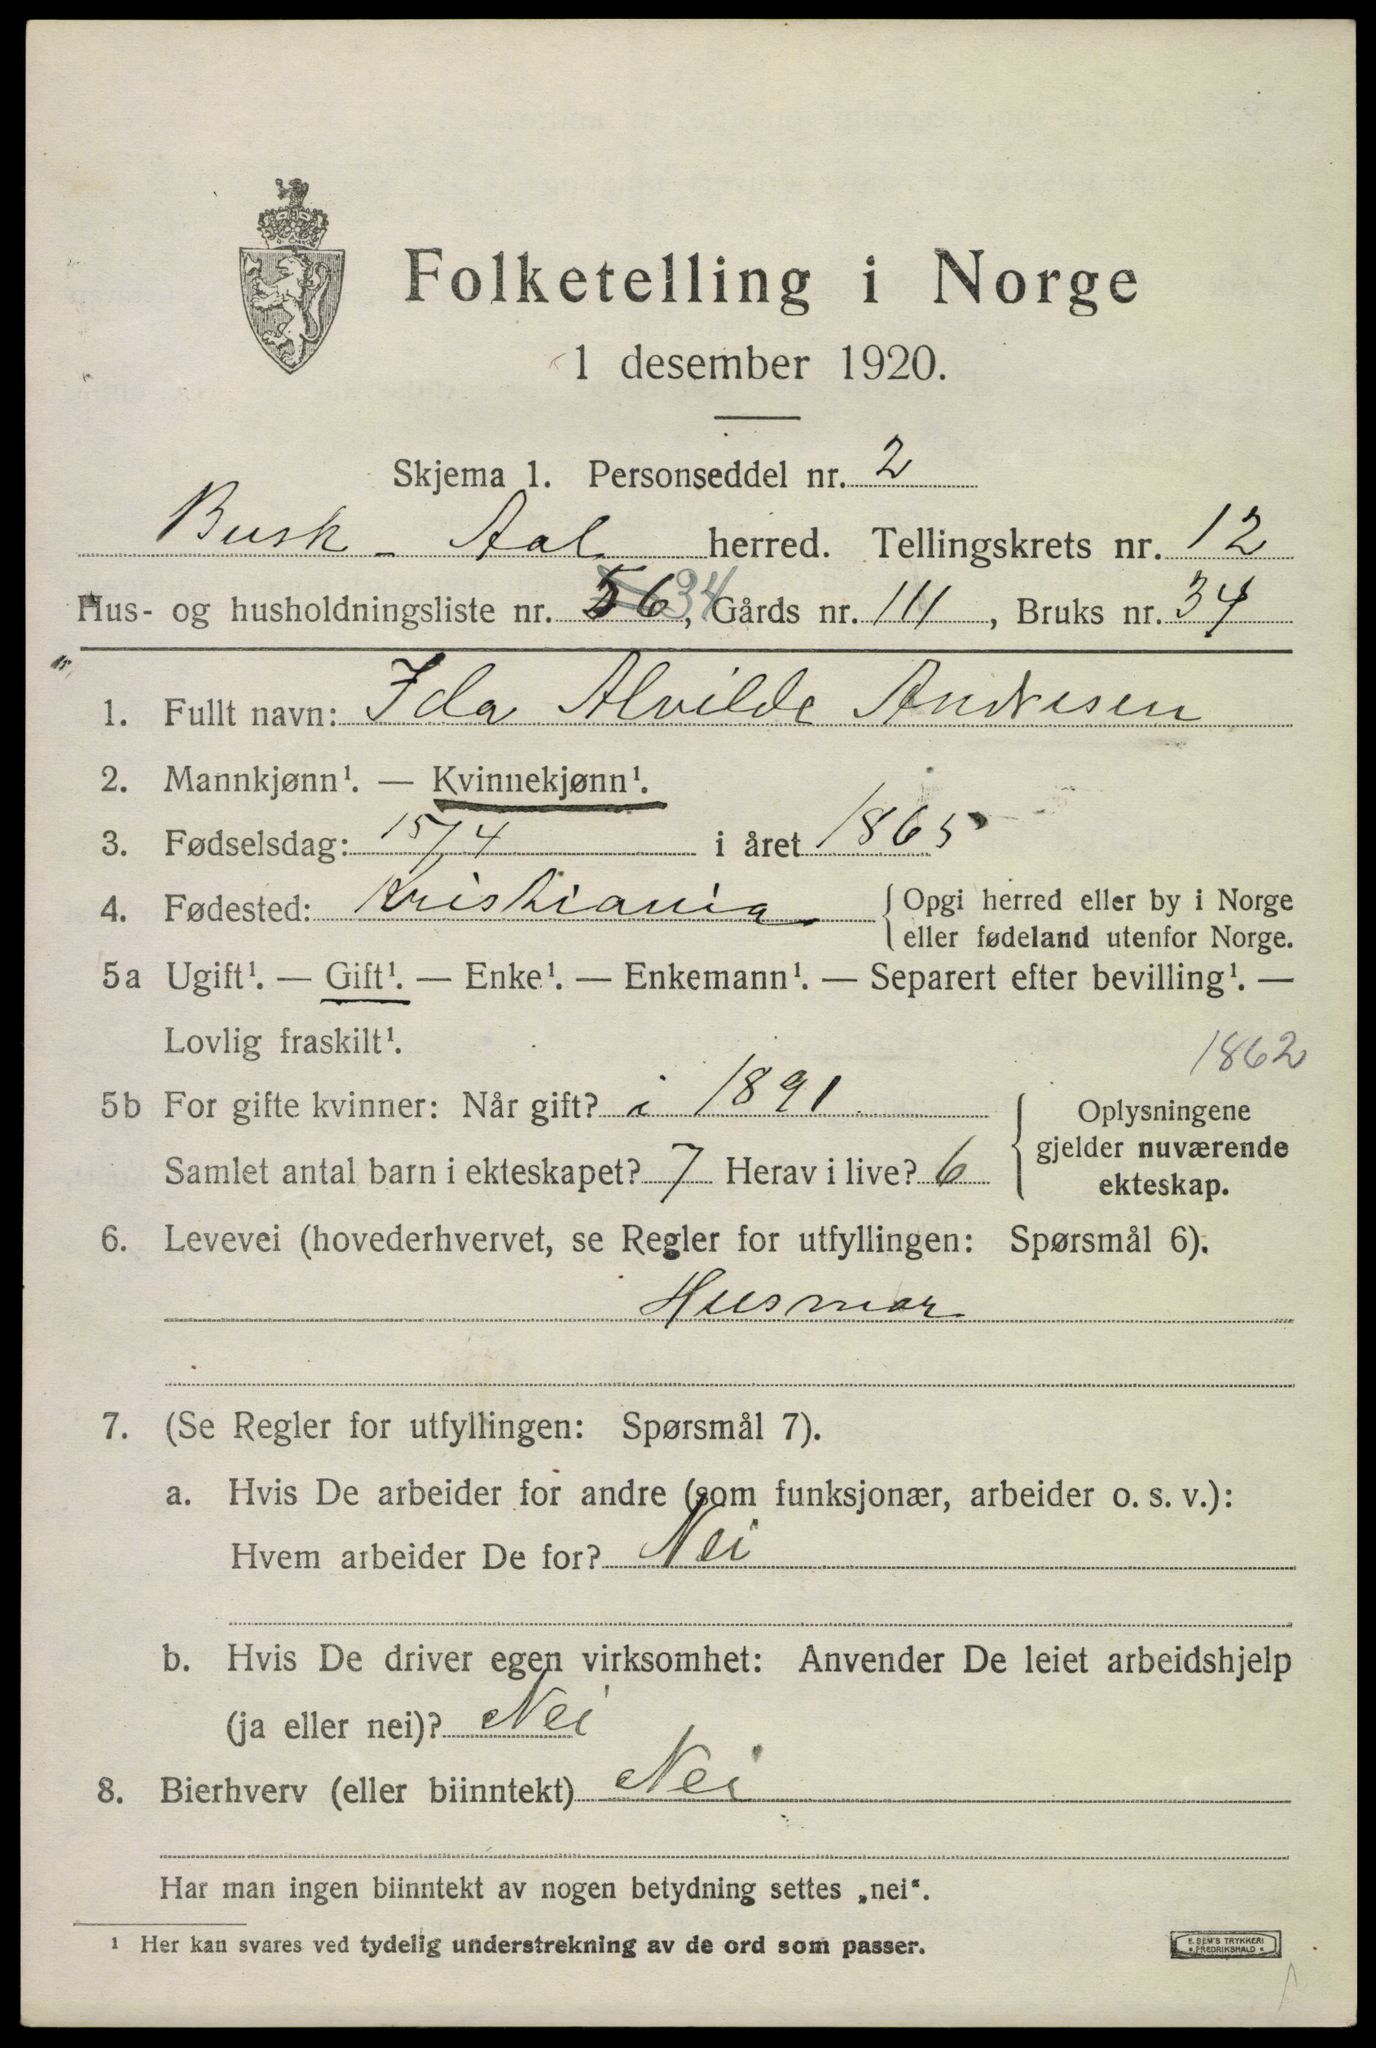 Folketelling i Norge
1 desember 1920.
Skjema 1. Personseddel nr. 2
Busk - Aal herred. Tellingskrets nr. 12
Hus- og husholdningsliste nr. 56 34, Gårds nr. 111, Bruks nr. 34
1. Fullt navn: Ida Alvilde Andresen
2. Mannkjønn¹. — Kvinnekjønn¹.
3. Fødselsdag: 15/4 i året 1865
4. Fødested: Kristiania { Opgi herred eller by i Norge
eller fødeland utenfor Norge.
5a Ugift¹. — Gift¹. — Enke¹. — Enkemann¹. — Separert efter bevilling¹. —
Lovlig fraskilt¹.
1862
5b For gifte kvinner: Når gift? i 1891
Samlet antal barn i ekteskapet? 7 Herav i live? 6
{ Oplysningene
gjelder nuværende
ekteskap.
6. Levevei (hovederhvervet, se Regler for utfyllingen: Spørsmål 6).
Husmor
7. (Se Regler for utfyllingen: Spørsmål 7).
a. Hvis De arbeider for andre (som funksjonær, arbeider o. s. v.):
Hvem arbeider De for? Nei
b. Hvis De driver egen virksomhet: Anvender De leiet arbeidshjelp
(ja eller nei)? Nei
8. Bierhverv (eller biinntekt) Nei
Har man ingen biinntekt av nogen betydning settes „nei“.
¹ Her kan svares ved tydelig understrekning av de ord som passer.
E. SEM'S TRYKKERI
• FREDRIKSHALD •